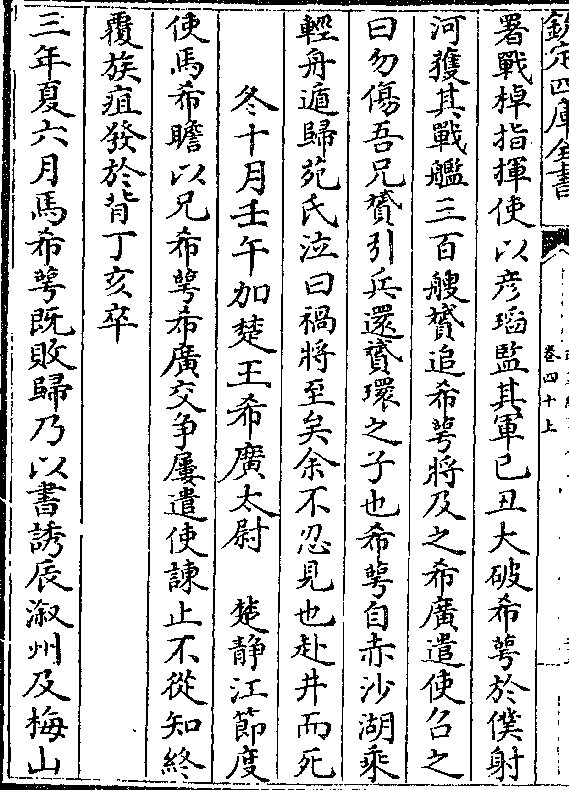 欽定四庫全書
卷四十上
署戰棹指揮使以彦瑫監其軍己丑大破希萼於僕射
河獲其戰艦三百艘贇追希萼將及之希廣遣使召之
曰勿傷吾兄贇引兵還贇環之子也希萼自赤沙湖乘
輕舟遁歸苑氏泣曰禍將至矣余不忍見也赴井而死
冬十月壬午加楚王希廣太尉　楚静江節度
使馬希瞻以兄希萼希廣交争屢遣使諫止不從知終
覆族疽發於背丁亥卒
三年夏六月馬希萼既敗歸乃以書誘辰溆州及梅山